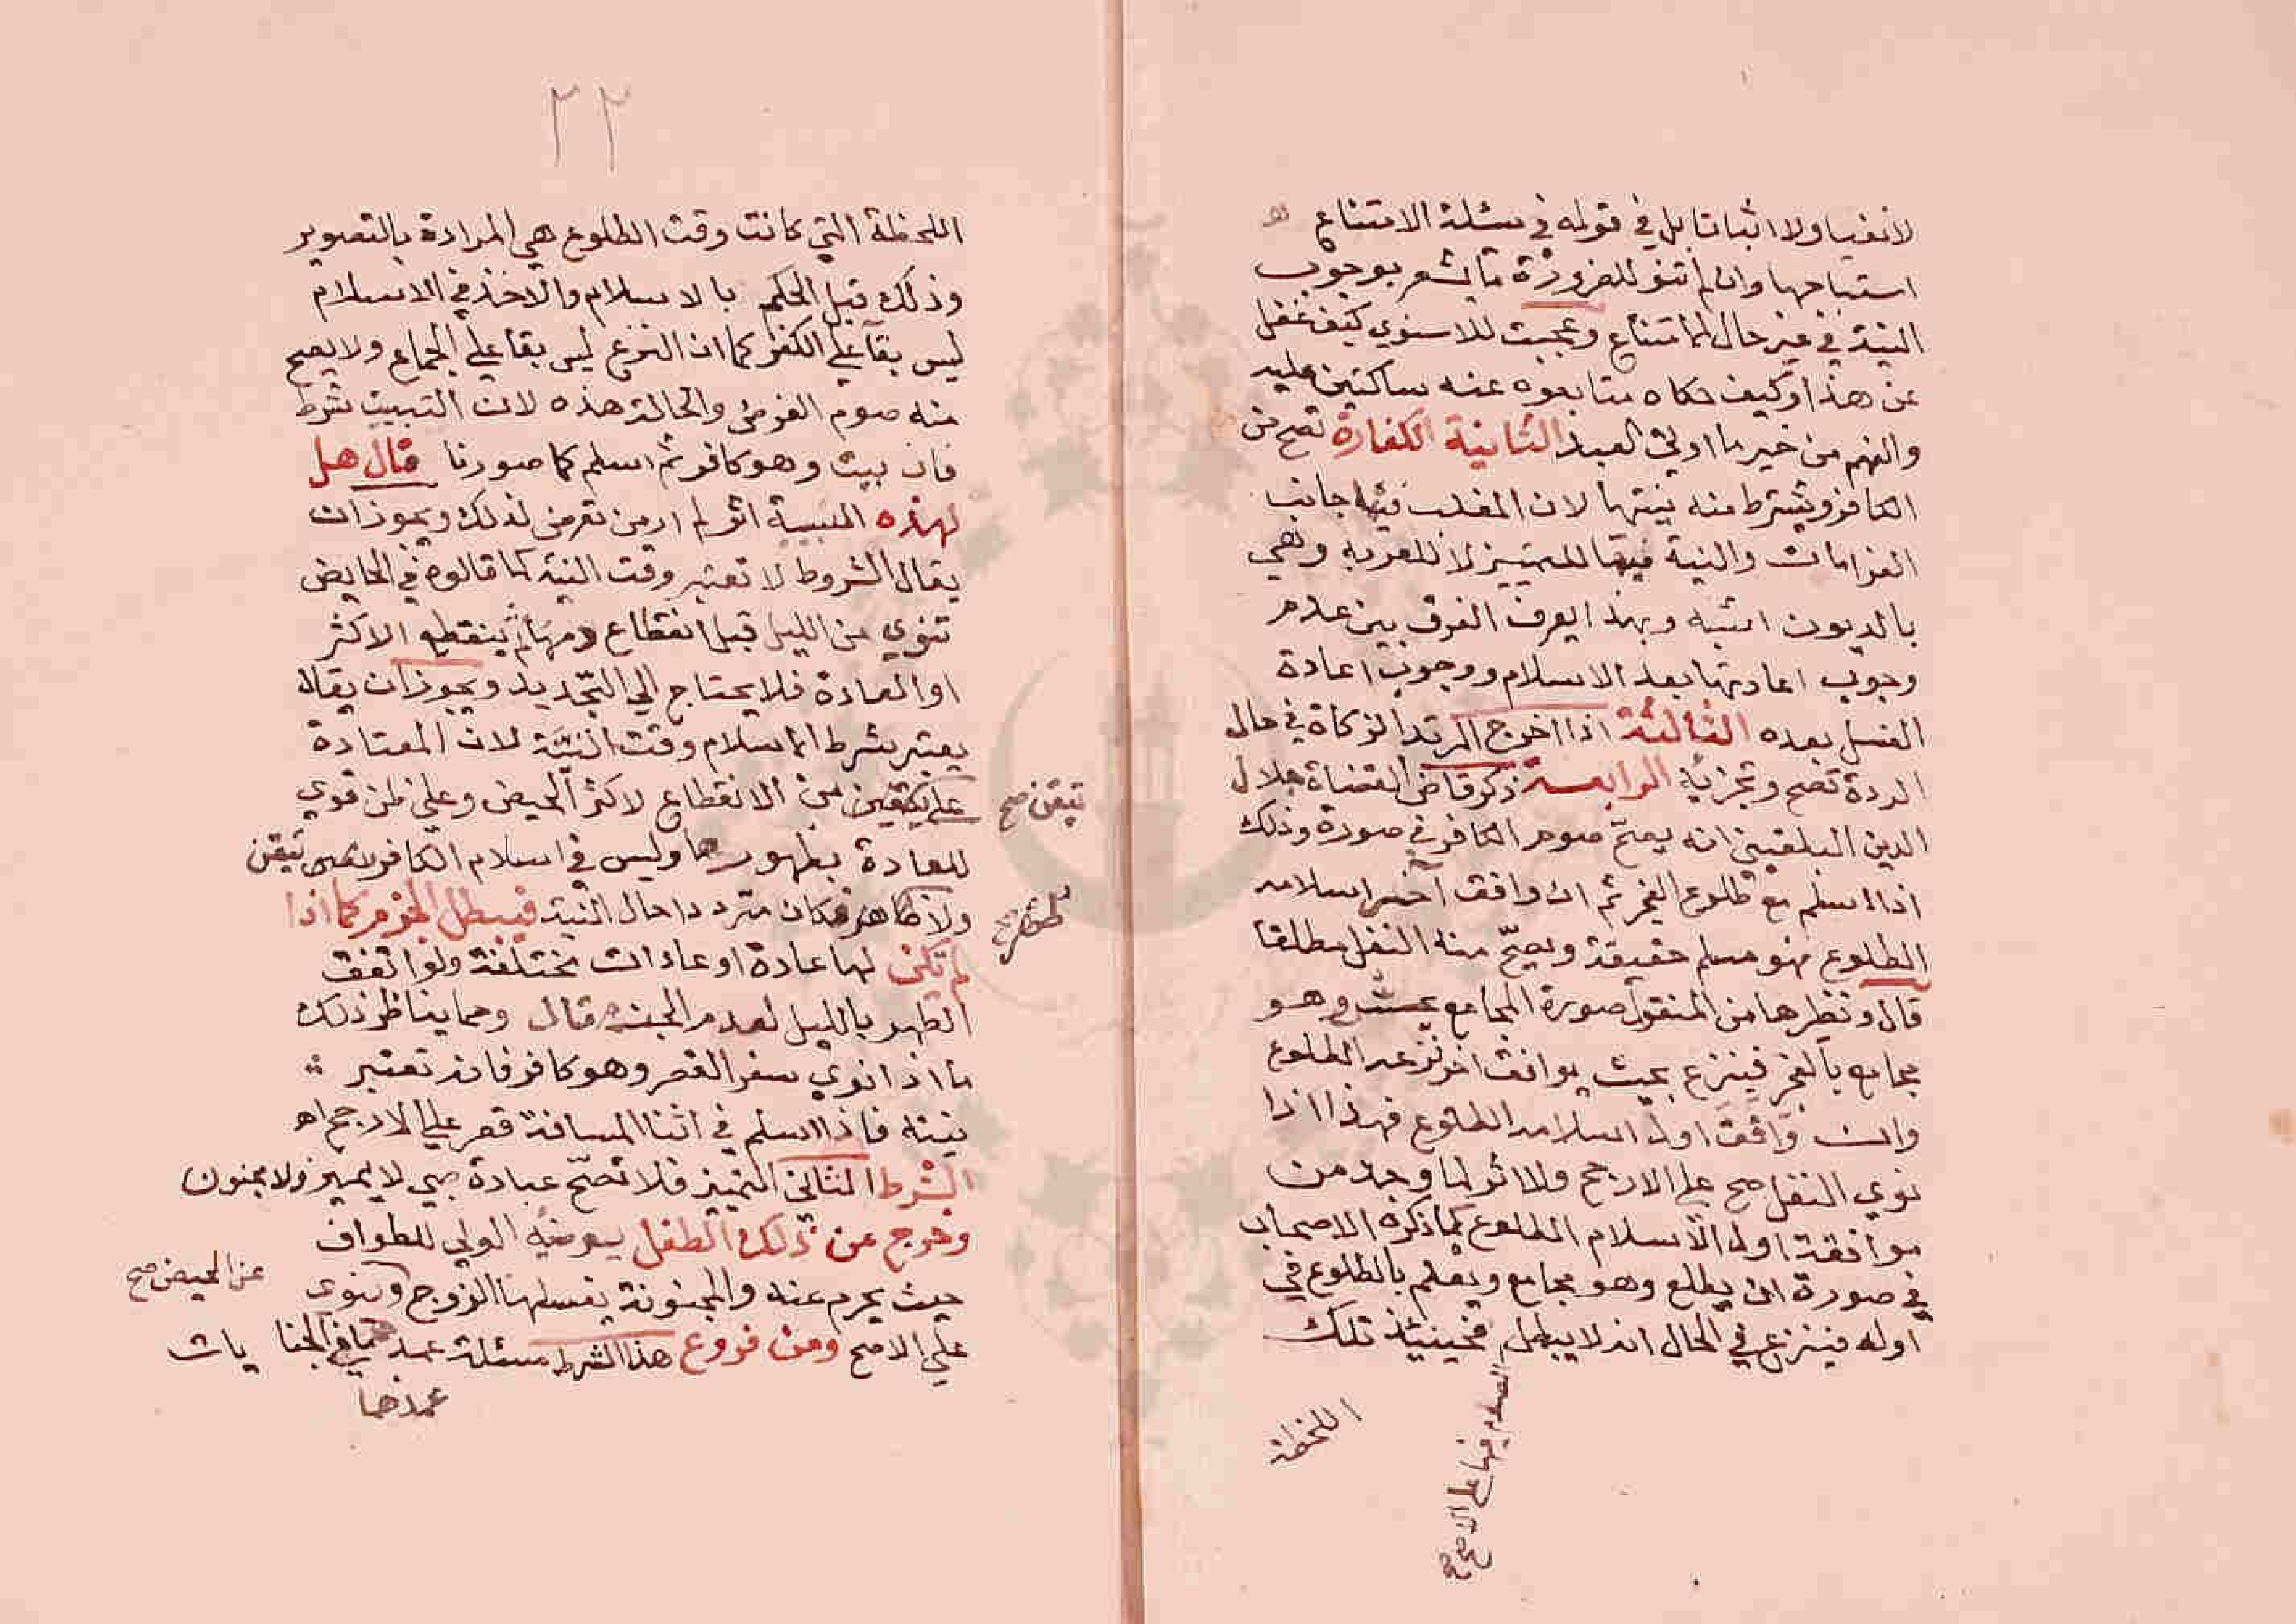 لانفيا ولا اثباتا بل في قوله في مسئلة الامتناع
استباحها وان لم تنو للضرورة ما يشعر بوجوب
النية في غير حال الامتناع وعجبت للاسنوي كيف غفل
عن هذا وكيف حكاه متابعوه عنه ساكتين عليه
والفهم من خير ما اوتي العبد الثانية الكفارة تصح من
الكافر ويشترط منه نيتها لان المغلب فيها جانب
الغرامات والنية فيها للتمييز لا للقربة وهي
بالديون اشبه وبهذا يعرف الفرق بين عدم
وجوب اعادتها بعد الاسلام ووجوب اعادة
الغسل بعده الثالثة اذا اخرج المرتد الزكاة في حال
الردة تصح وتجزيه الرابعة ذكر قاضي القضاة جلال
الدين البلقيني انه يصح صوم الكافر في صورة وذلك
اذا اسلم مع طلوع الفجر ثم ان وافق آخر اسلامه
الطلوع فهو مسلم حقيقة ويصح منه النفل مطلقا
قال ونظيرها من المنقول صورة المجامع وهو
مجامع بالفجر فينزع بحيث يوافق اخر نزعه الطلوع
وان وافق اول اسلامه الطلوع فهذا اذا
نوي النفل صح علي الارجح ولا اثر لما وجد من
موافقة اول الاسلام الطلوع كما ذكره الاصحاب
في صورة ان يطلع وهو مجامع ويعلم بالطلوع في
اوله فينزع في الحال انه لا يبطل فحينيئذ تلك
الصوم فيها علي الاصح
اللحظة
٢٢
اللحظة التي كانت وقت الطلوع هي المرادة بالتصوير
وذلك قبل الحكم بالاسلام والاخذ في الاسلام
ليس بقآ علي الكفر كما ان النزع ليس بقا علي الجماع ولا يصح
منه صوم الفرض والحالة هذه لان التبييت شرط
فان بيت وهو كافر ثم اسلم كما صورنا قال هل
لهذه النية اثر لم ار من تعرض لذلك ويجوز ان
يقال الشروط لا تعتبر وقت النية كما قالوه في الحايض
تنوي من الليل قبل انقطاع دمها ثم ينقطع الاكثر
او العادة فلا يحتاج الي التجديد ويجوز ان يقال
يعتبر شرط الاسلام وقت النية لان المعتادة
علي يقين من الانقطاع لاكثر الحيض وعلي ظن قوي
تيقن صح
للعادة بظهورها وليس في اسلام الكافر تيقن
ولا ظاهر فكان مترددا حال النية فيبطل الجزم كما اذا
لم تكن لها عادة او عادات مختلفة ولو اتفق
الطهر بالليل لعدم الجزم قال ومما يناظر ذلك
ما اذا نوي سفر القصر وهو كافر فانه تعتبر
نيته فاذا اسلم في اثنا المسافة قصر علي الارجح اه
الشرط الثاني التمييز فلا تصح عبادة صبي لا يميز ولا مجنون
وخرج عن ذلك الطفل يوضيه الولي للطواف
حيث يحرم عنه والمجنونة يغسلها الزوج وينوي
عن الحيض صح
علي الاصح ومن فروع هذا الشرط مسئلة عمدهما في الجنايات
عمدهما